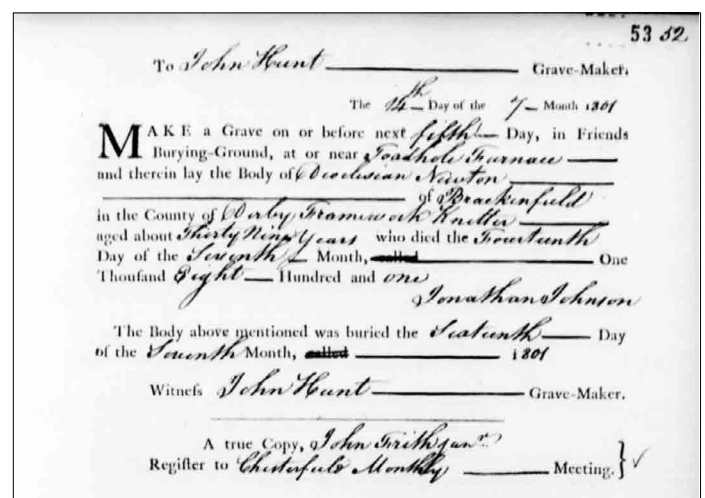 53 52
To John Hunt Grave-Maker.
The 14th Day of the 7 Month 1801
MAKE a Grave on or before next fifth Day, in Friends
Burying-Ground, at or near Toadhole Furnace
and therein lay the Body of Dioclesian Newton
of Brackenfield
in the County of Derby Framework Knitter
aged about Thirty Nine Years who died the Fourteenth
Day of the Seventh Month, called One
Thousand Eight Hundred and one
Jonathan Johnson
The Body above mentioned was buried the Sixteenth Day
of the Seventh Month, called 1801
Witneſs John Hunt Grave-Maker.
A true Copy, John Frith junr.
Regiſter to Chesterfield Monthly Meeting.} ✓